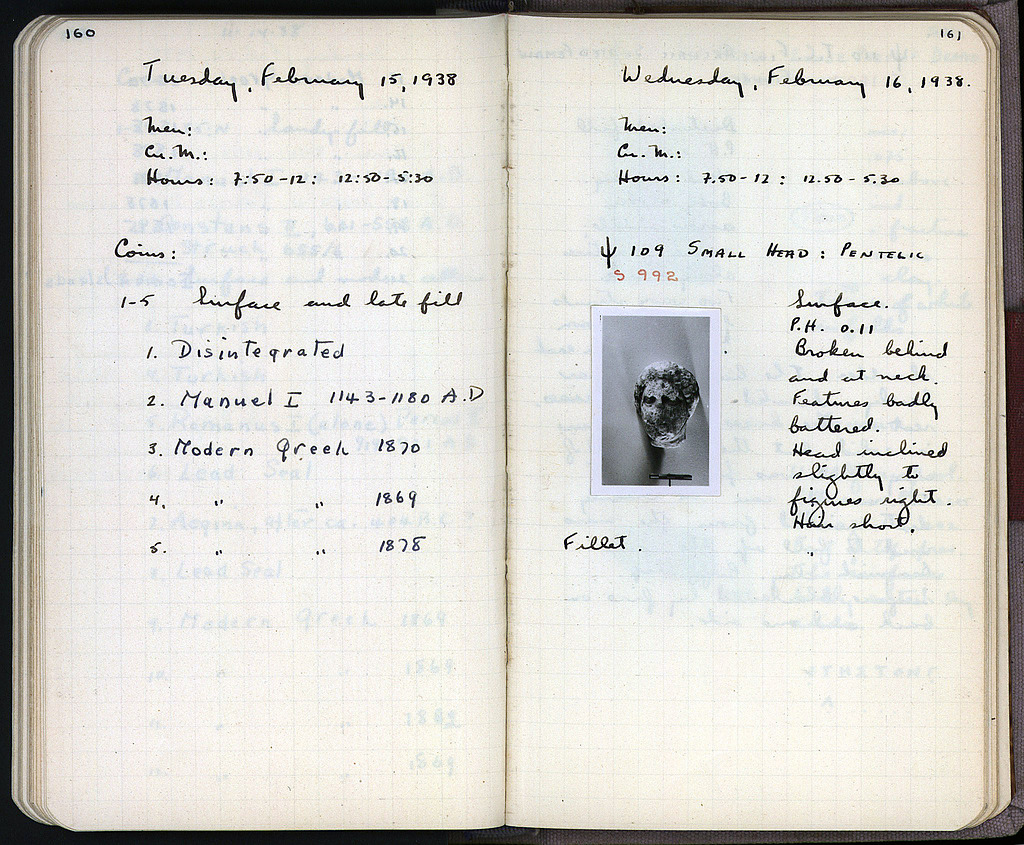 160
Tuesday, February 15, 1938
Men:
Cu. M.:
Hours: 7:50-12: 12:50-5:30
Coins:
1-5 Surface and late fill
1. Disintegrated
2. Manuel I 1143-1180 A.D
3. Modern Greek 1870
4. " " 1869
5. " " 1878
161
Wednesday, February 16, 1938.
Men:
Cu. M.:
Hours: 7.50-12: 12.50-5.30
ψ 109 SMALL HEAD: PENTELIC
S 992
Surface.
P.H. 0.11
Broken behind
and at neck.
Features badly
battered.
Head inclined
slightly to
figures right.
Hair short.
Fillet.